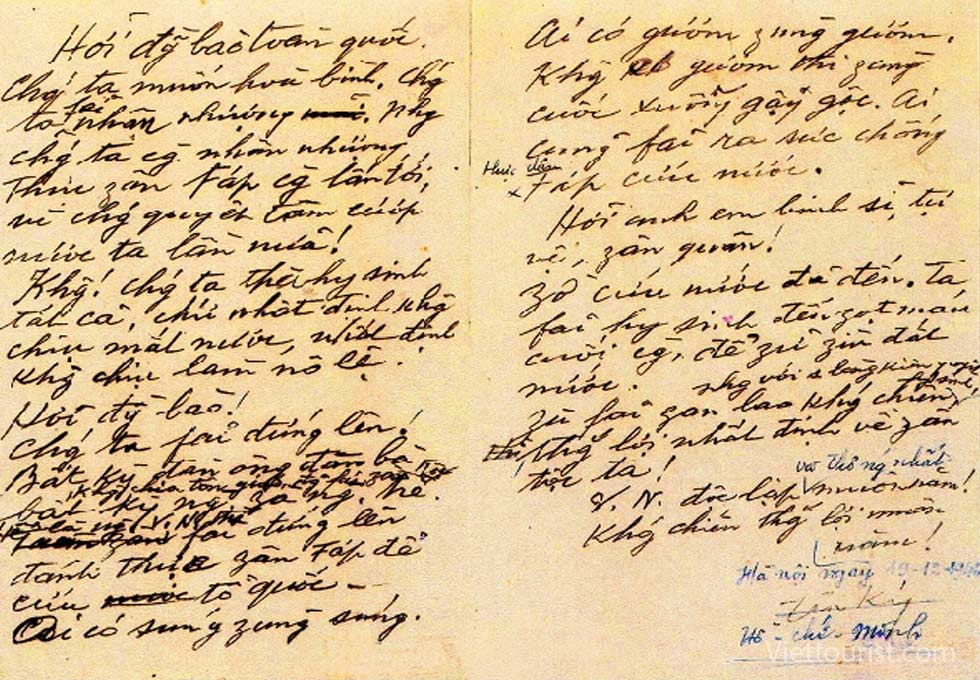 Hỡi đg̃ bào toàn quốc.
Chǵ ta muốn hoà bình, chǵ
ta fải nhân nhượng. Nhg
chǵ ta cg̀ nhân nhượng,
thực zân Fáp cg̀ lấn tới,
vì chǵ quyết tâm cướp
nước ta lần nữa!
Khg! Chǵ ta thà hy sinh
tất cả, chứ nhất định khg
chịu mất nước, nhất định
khg chịu làm nô lệ.
Hỡi đg̀ bào!
Chǵ ta fải đứng lên!
Bất kỳ đàn ông đàn bà
bất kỳ ng. già ng. trẻ.
Hễ là ng. V.N. thì
fải đứng lên
đánh thực zân Fáp để
cứu tổ quốc
Ai có súng zùng súng.
Ai có gươm zùng gươm,
Khg có gươm thì zùng
cuốc xuổng gậy gộc. Ai
cũng fải ra sức chống
thực dân
Fáp cứu nước.
Hỡi anh em binh sĩ, tự
vệ, zân quân!
Zờ cứu nước đã đến. Ta
fải hy sinh đến zọt máu
cuối cg̀, để zữ zìn đất
nước.
Zù fải gan lao khǵ chiến
nhg với 1 lòng kiên quyết
hy sinh,
thg̃ lợi nhất định về zân
tộc ta!
và thống nhất
V. N. độc lập muôn năm!
Khǵ chiến thg̃ lợi muôn
năm!
Hà nội ngày 19-12-1946
Hồ-chí-Minh
Viettourist.com